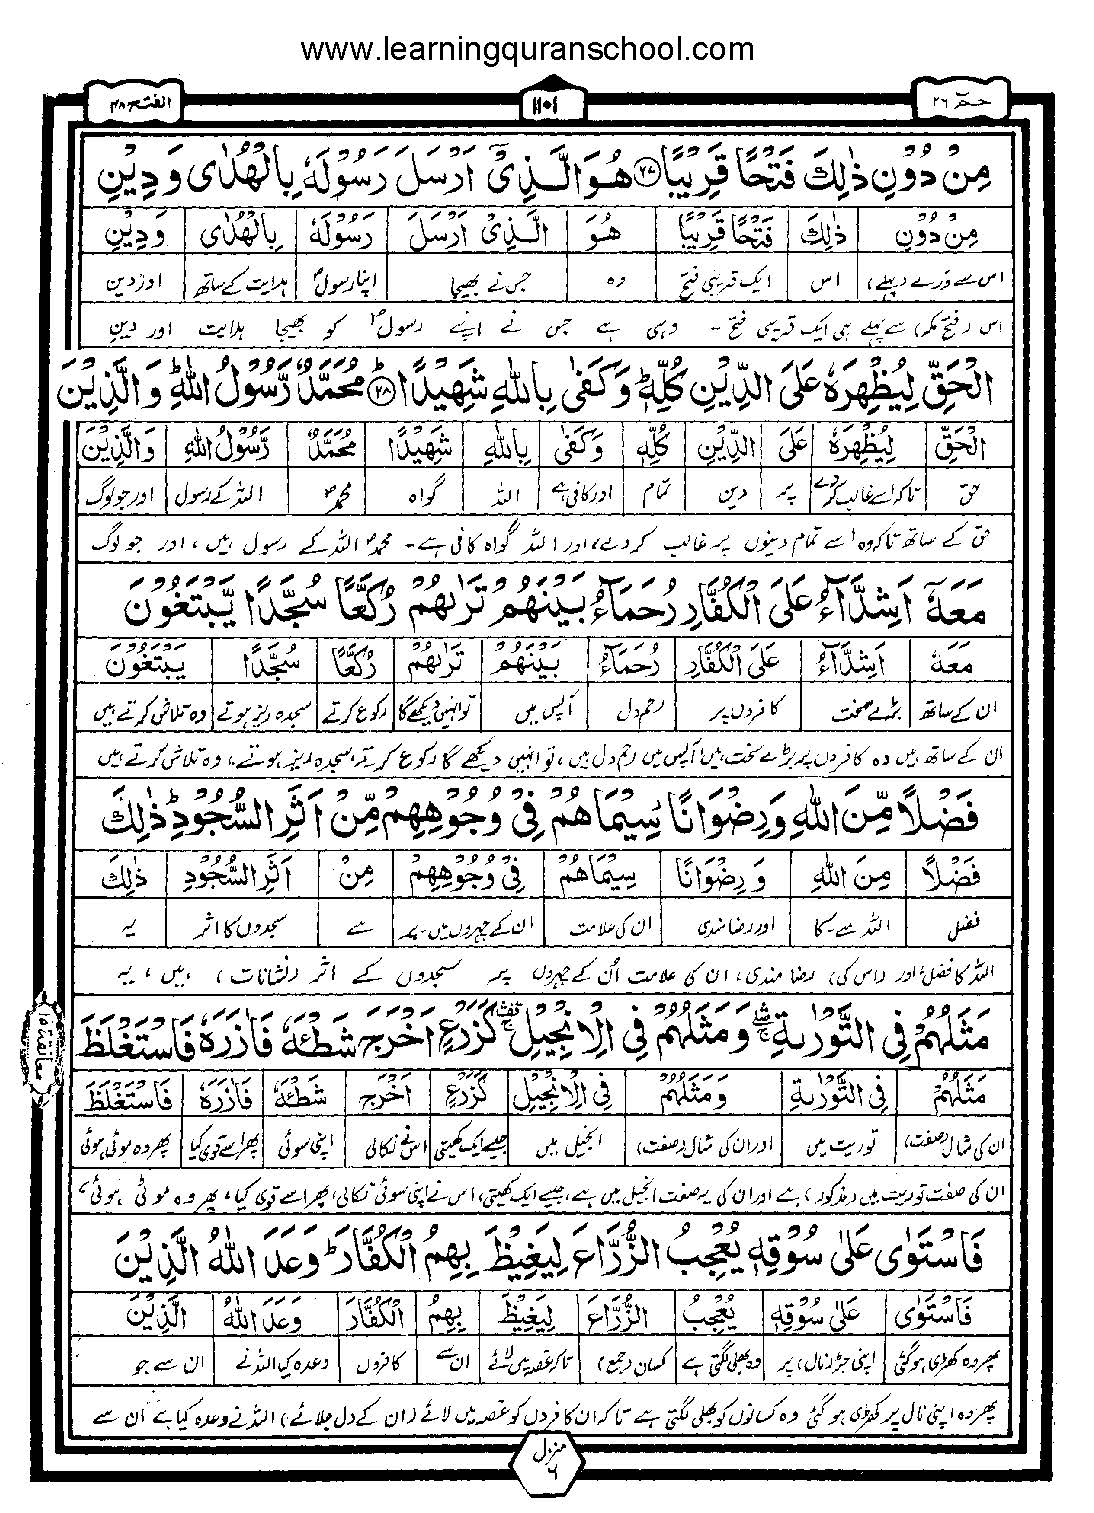 www.learningquranschool.com
حٰمٓ ٢٦
١١٠١
الفتح ٤٨
مِنْ دُوْنِ ذٰلِكَ فَتْحًا قَرِيْبًا ۝٢٧ هُوَ الَّذِيْٓ اَرْسَلَ رَسُوْلَهٗ بِالْهُدٰى وَدِيْنِ
مِنْ دُوْنِ ذٰلِكَ فَتْحًا قَرِيْبًا هُوَ الَّذِيْٓ اَرْسَلَ رَسُوْلَهٗ بِالْهُدٰى وَدِيْنِ
اس سے ورے (پہلے) اس ایک قریبی فتح وہ جس نے بھیجا اپنا رسولؐ ہدایت کے ساتھ اور دین
اس (فتح مکہ) سے پہلے ہی ایک قریبی فتح ۔ وہی ہے جس نے اپنے رسولؐ کو بھیجا ہدایت اور دینِ
الْحَقِّ لِيُظْهِرَهٗ عَلَى الدِّيْنِ كُلِّهٖ ؕ وَكَفٰى بِاللّٰهِ شَهِيْدًا ؕ۝٢٨ مُحَمَّدٌ رَّسُوْلُ اللّٰهِ ؕ وَالَّذِيْنَ
الْحَقِّ لِيُظْهِرَهٗ عَلَى الدِّيْنِ كُلِّهٖ وَكَفٰى بِاللّٰهِ شَهِيْدًا مُحَمَّدٌ رَّسُوْلُ اللّٰهِ وَالَّذِيْنَ
حق تاکہ اسے غالب کردے پر دین تمام اور کافی ہے اللہ گواہ محمدؐ اللہ کے رسول اور جو لوگ
حق کے ساتھ تاکہ وہ اسے تمام دینوں پر غالب کردے، اور اللہ گواہ کافی ہے۔ محمدؐ اللہ کے رسول ہیں، اور جو لوگ
مَعَهٗٓ اَشِدَّآءُ عَلَى الْكُفَّارِ رُحَمَآءُ بَيْنَهُمْ تَرٰىهُمْ رُكَّعًا سُجَّدًا يَّبْتَغُوْنَ
مَعَهٗٓ اَشِدَّآءُ عَلَى الْكُفَّارِ رُحَمَآءُ بَيْنَهُمْ تَرٰىهُمْ رُكَّعًا سُجَّدًا يَبْتَغُوْنَ
ان کے ساتھ بڑے سخت کافروں پر رحم دل آپس میں تو انہیں دیکھے گا رکوع کرتے سجدہ ریز ہوتے وہ تلاش کرتے ہیں
ان کے ساتھ ہیں وہ کافروں پر بڑے سخت ہیں آپس میں رحم دل ہیں، تو انہیں دیکھے گا رکوع کرتے سجدہ ریز ہوتے، وہ تلاش کرتے ہیں
فَضْلًا مِّنَ اللّٰهِ وَرِضْوَانًا سِيْمَاهُمْ فِيْ وُجُوْهِهِمْ مِّنْ اَثَرِ السُّجُوْدِ ؕ ذٰلِكَ
فَضْلًا مِنَ اللّٰهِ وَرِضْوَانًا سِيْمَاهُمْ فِيْ وُجُوْهِهِمْ مِنْ اَثَرِ السُّجُوْدِ ذٰلِكَ
فضل اللہ سے کا اور رضا مندی ان کی علامت ان کے چہروں میں۔پر سے سجدوں کا اثر یہ
اللہ کا فضل اور (اس کی) رضا مندی، ان کی علامت اُن کے چہروں پر سجدوں کے اثر (نشانات) ہیں، یہ
مَثَلُهُمْ فِي التَّوْرٰىةِ ۛ وَمَثَلُهُمْ فِي الْاِنْجِيْلِ ۛ كَزَرْعٍ اَخْرَجَ شَطْـَٔهٗ فَاٰزَرَهٗ فَاسْتَغْلَظَ
مَثَلُهُمْ فِي التَّوْرٰىةِ وَمَثَلُهُمْ فِي الْاِنْجِيْلِ كَزَرْعٍ اَخْرَجَ شَطْـَٔهٗ فَاٰزَرَهٗ فَاسْتَغْلَظَ
ان کی مثال (صفت) توریت میں اور ان کی مثال (صفت) انجیل میں جیسے ایک کھیتی اس نے نکالی اپنی سوئی پھر اسے قوی کیا پھر وہ موٹی ہوئی
ان کی صفت توریت میں (مذکور) ہے اور ان کی یہ صفت انجیل میں ہے، جیسے ایک کھیتی، اس نے اپنی سوئی نکالی، پھر اسے قوی کیا، پھر وہ موٹی ہوئی،
فَاسْتَوٰى عَلٰى سُوْقِهٖ يُعْجِبُ الزُّرَّاعَ لِيَغِيْظَ بِهِمُ الْكُفَّارَ ؕ وَعَدَ اللّٰهُ الَّذِيْنَ
فَاسْتَوٰى عَلٰى سُوْقِهٖ يُعْجِبُ الزُّرَّاعَ لِيَغِيْظَ بِهِمُ الْكُفَّارَ وَعَدَ اللّٰهُ الَّذِيْنَ
پھر وہ کھڑی ہو گئی اپنی جڑ (نال) پر وہ بھلی لگتی ہے کسان (جمع) تاکہ غصہ میں لائے ان سے کافروں وعدہ کیا اللہ نے ان سے جو
پھر وہ اپنی نال پر کھڑی ہو گئی وہ کسانوں کو بھلی لگتی ہے تاکہ ان کافروں کو غصہ میں لائے (ان کے دل جلائے) اللہ نے وعدہ کیا ہے اُن سے
منزل ٦